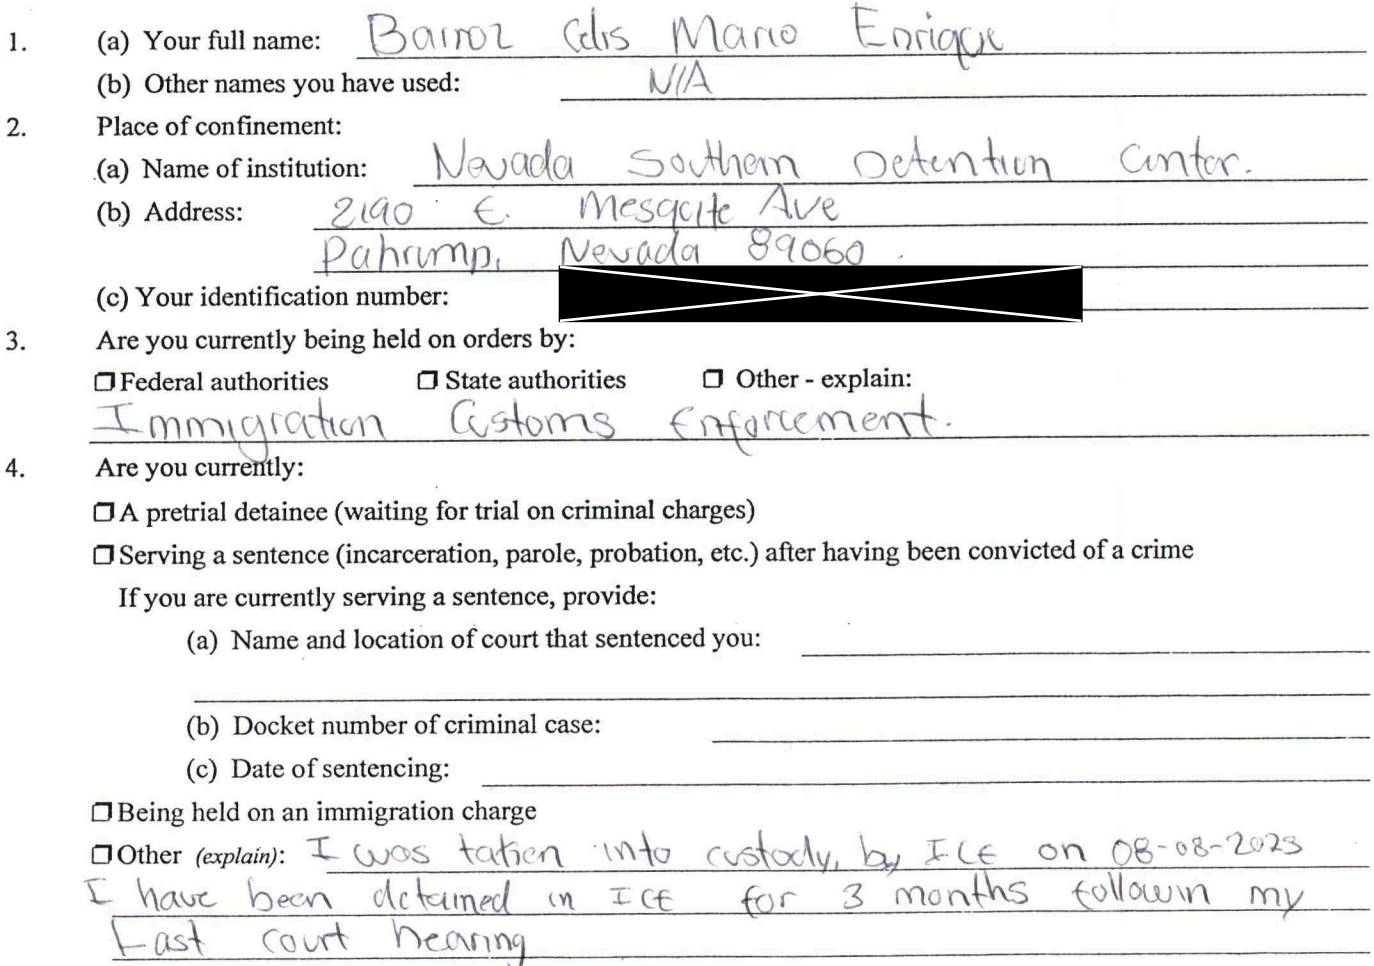 1. (a) Your full name: Barroz Celis Mario Enrique
(b) Other names you have used: N/A
2. Place of confinement:
(a) Name of institution: Nevada Southern Detention Center.
(b) Address: 2190 E. Mesquite Ave
Pahrump, Nevada 89060
(c) Your identification number:
3. Are you currently being held on orders by:
☐ Federal authorities ☐ State authorities ☐ Other - explain:
Immigration Customs Enforcement.
4. Are you currently:
☐ A pretrial detainee (waiting for trial on criminal charges)
☐ Serving a sentence (incarceration, parole, probation, etc.) after having been convicted of a crime
If you are currently serving a sentence, provide:
(a) Name and location of court that sentenced you:
(b) Docket number of criminal case:
(c) Date of sentencing:
☐ Being held on an immigration charge
☐ Other (explain): I was taken into custody, by ICE on 08-08-2025
I have been detained in ICE for 3 months followin my
Last court hearing